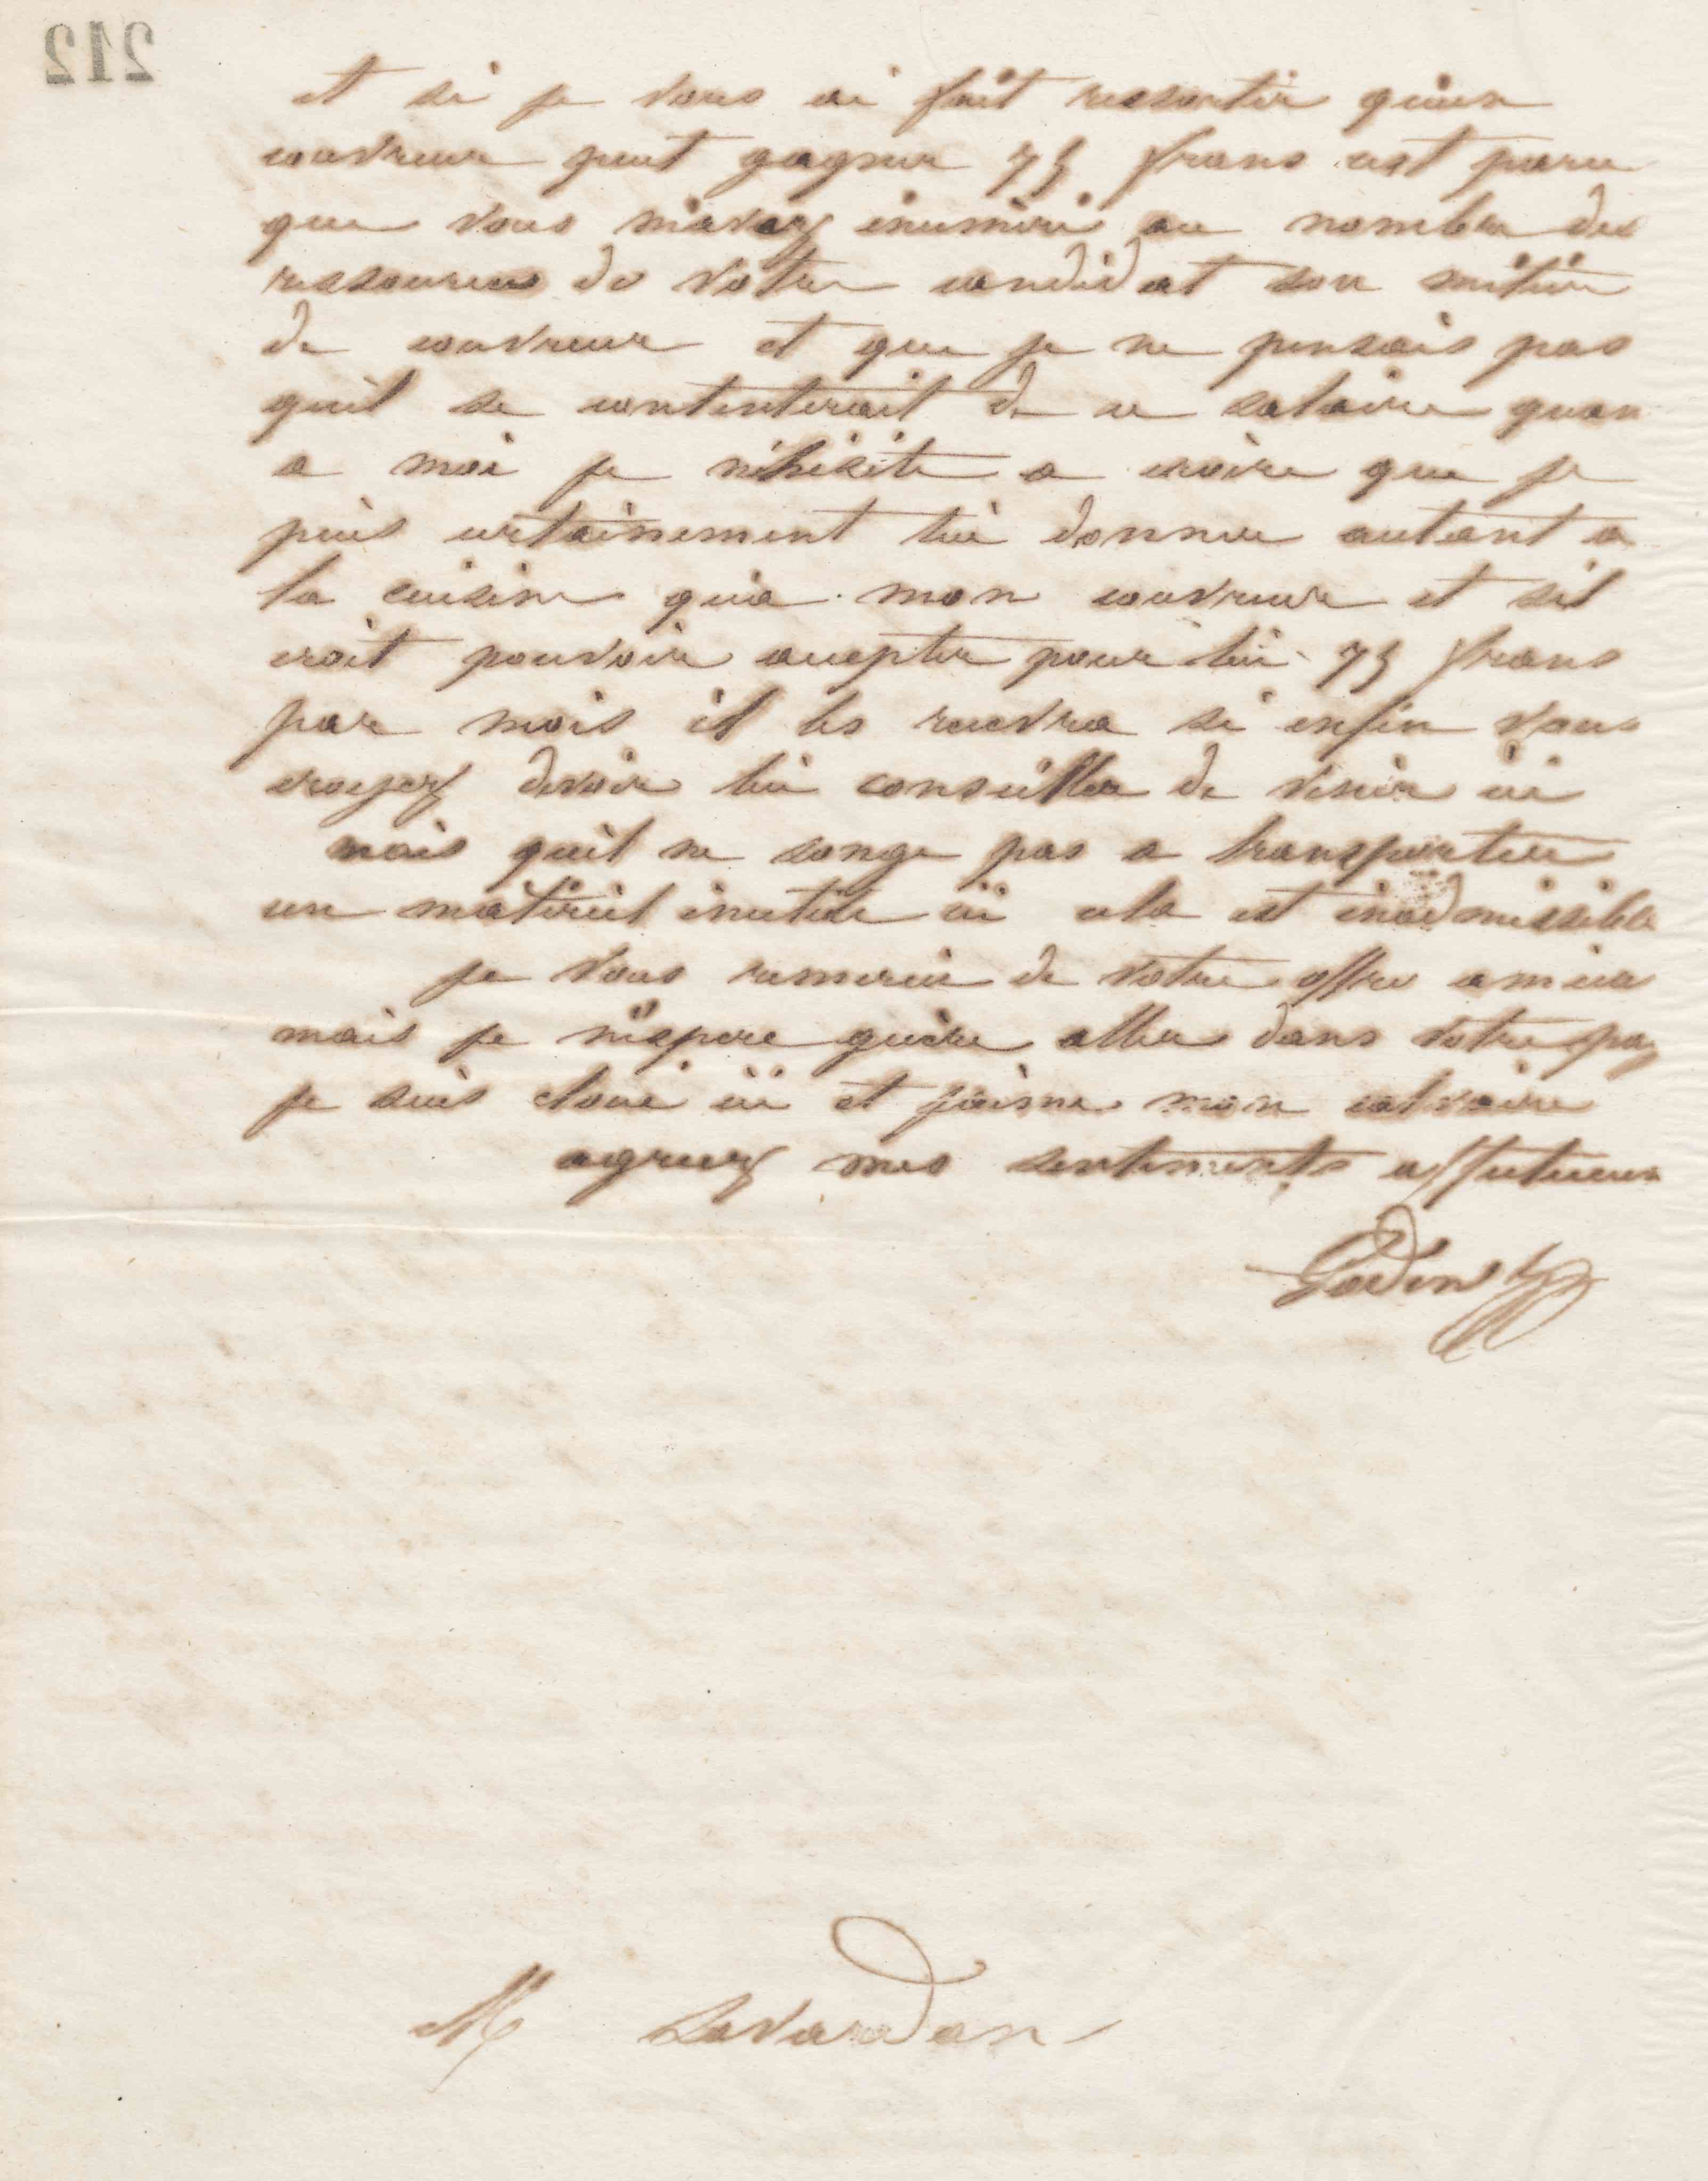 212
et si je vous ai fait ressortir qu'un
couvreur peut gagner 75 francs cest parce
que vous m'avez énuméré au nombre des
ressources de votre candidat son métier
de couvreur et que je ne pensais pas
quil se contenterait de ce salaire quan
a moi je n'hésite a croire que je
puis certainement lui donner autant a
la cuisine qu'a mon couvreur et sil
croit pouvoir accepter pour lui 75 francs
par mois il les recevra si enfin vous
croyez devoir lui conseiller de venir ici
mais quil ne songe pas a transporter
un matériel inutile ici cela est inadmissible
je vous remercie de votre offre amicale
mais je n'espere guère aller dans votre pays
je suis cloué ici et j'aime mon calvaire
agreez mes sentiments affectueux
Godin
M Savardan